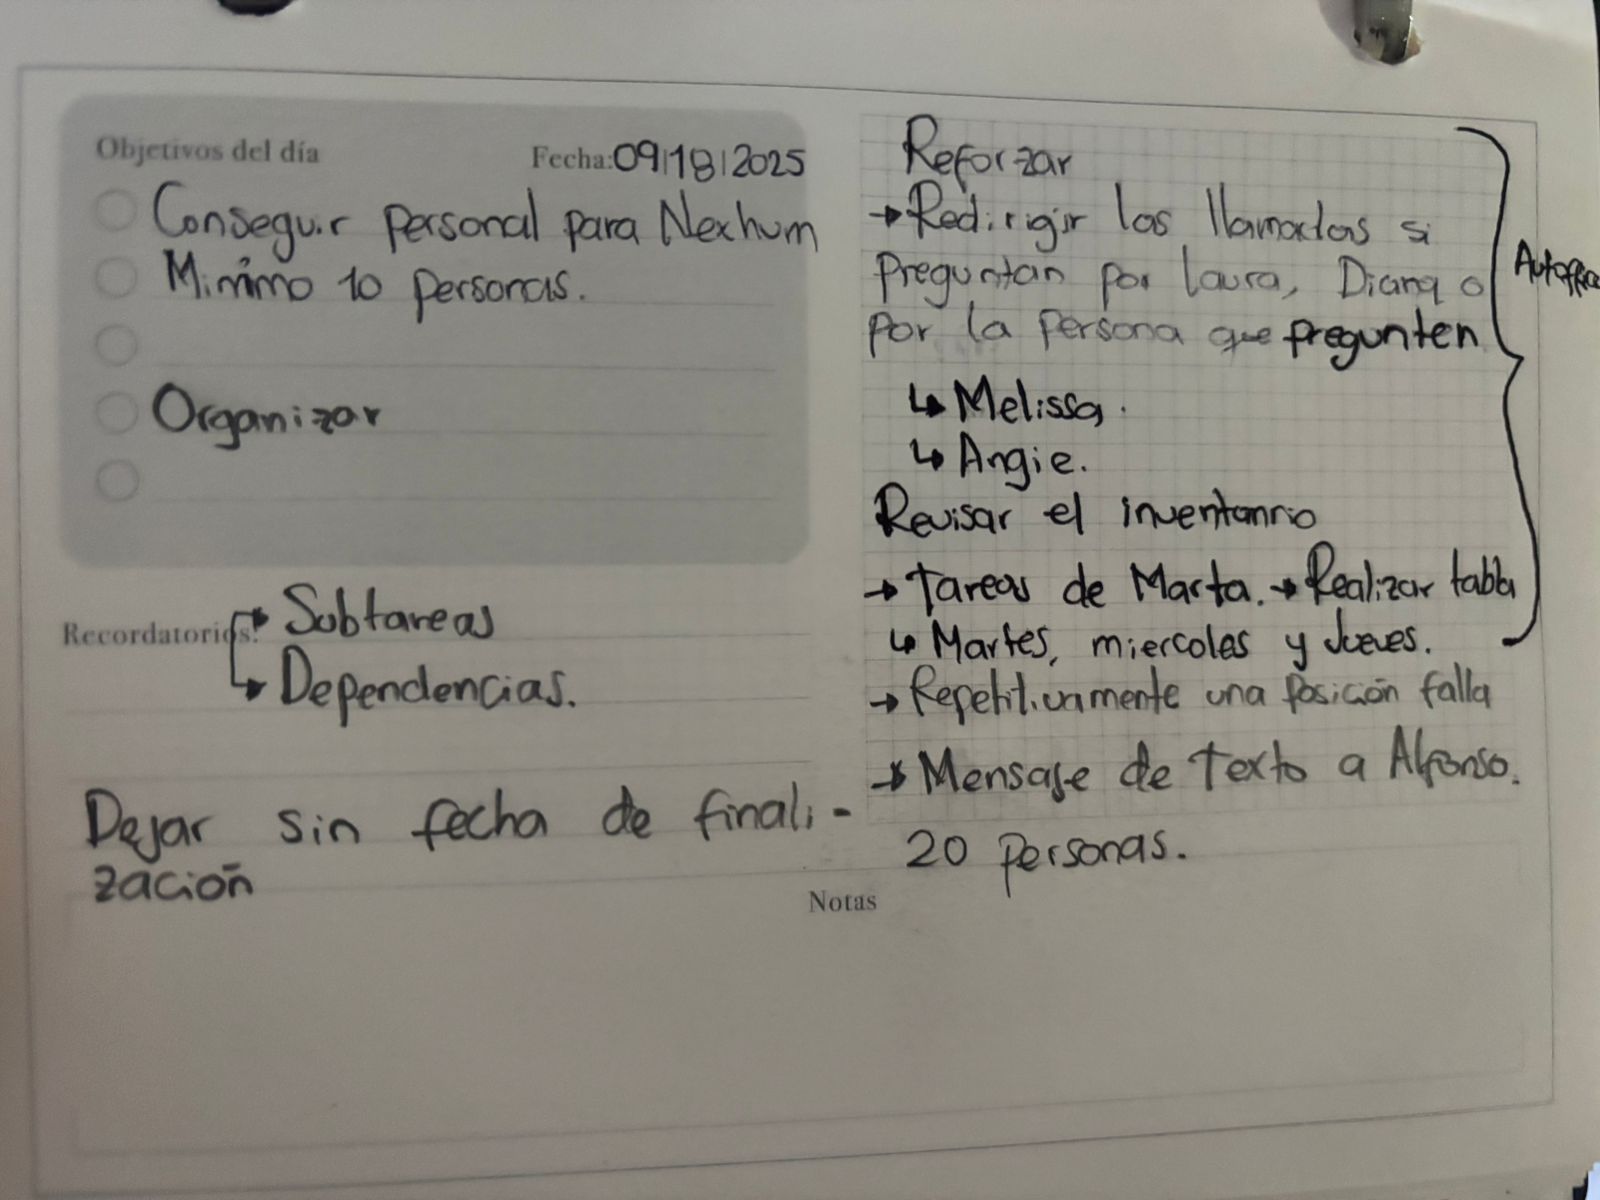 Objetivos del día
Fecha: 09|18|2025
Conseguir personal para Nexhum
Minimo 10 personas.
Organizar
Recordatorios:
→ Subtareas
→ Dependencias.
Dejar sin fecha de finali-
zación
Reforzar
→ Redirigir las llamadas si
preguntan por Laura, Diana o
por la persona que pregunten
↳ Melissa.
↳ Angie.
Revisar el inventanrio
→ Tareas de Marta. → Realizar tabla
↳ Martes, miercoles y Jueves.
→ Repetitivamente una posición falla
→ Mensaje de Texto a Alfonso.
20 personas.
Notas